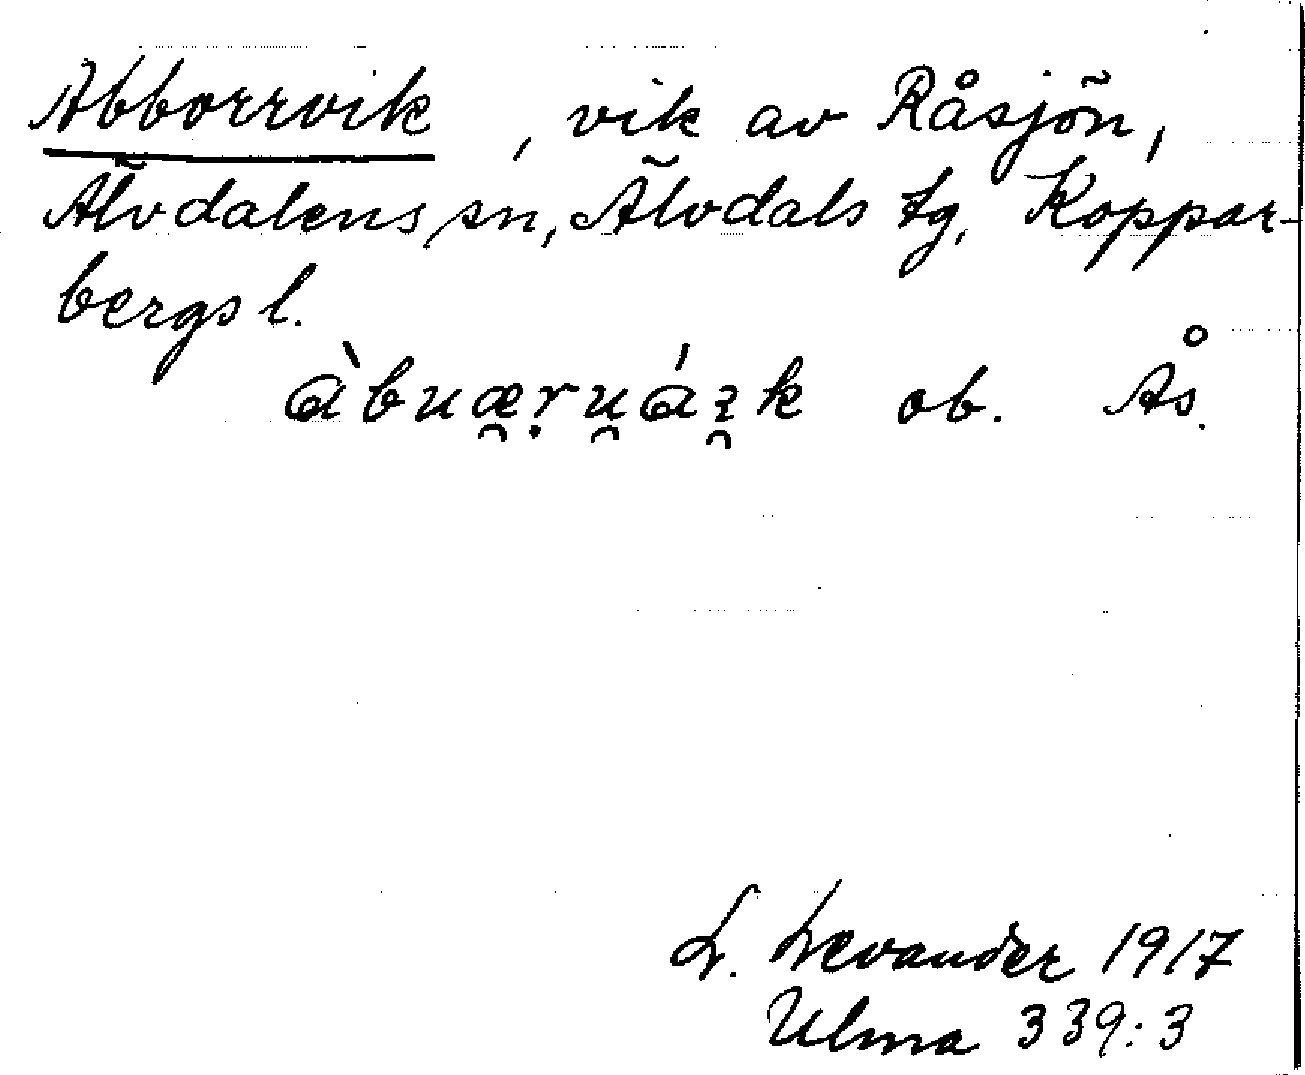 Abborrvik, vik av Råsjön,
Älvdalens sn, Älvdals tg, Koppar-
bergs l.
ob. Ås.
L. Levander 1917
Ulma 339:3